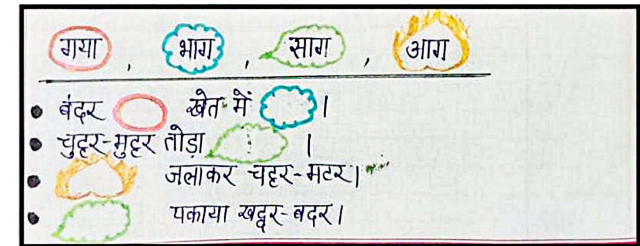 गया , भाग , साग , आग
• बंदर खेत में ।
• चुट्टर-मुट्टर तोड़ा ।
• जलाकर चट्टर-मटर।
• पकाया खद्दर-बदर।